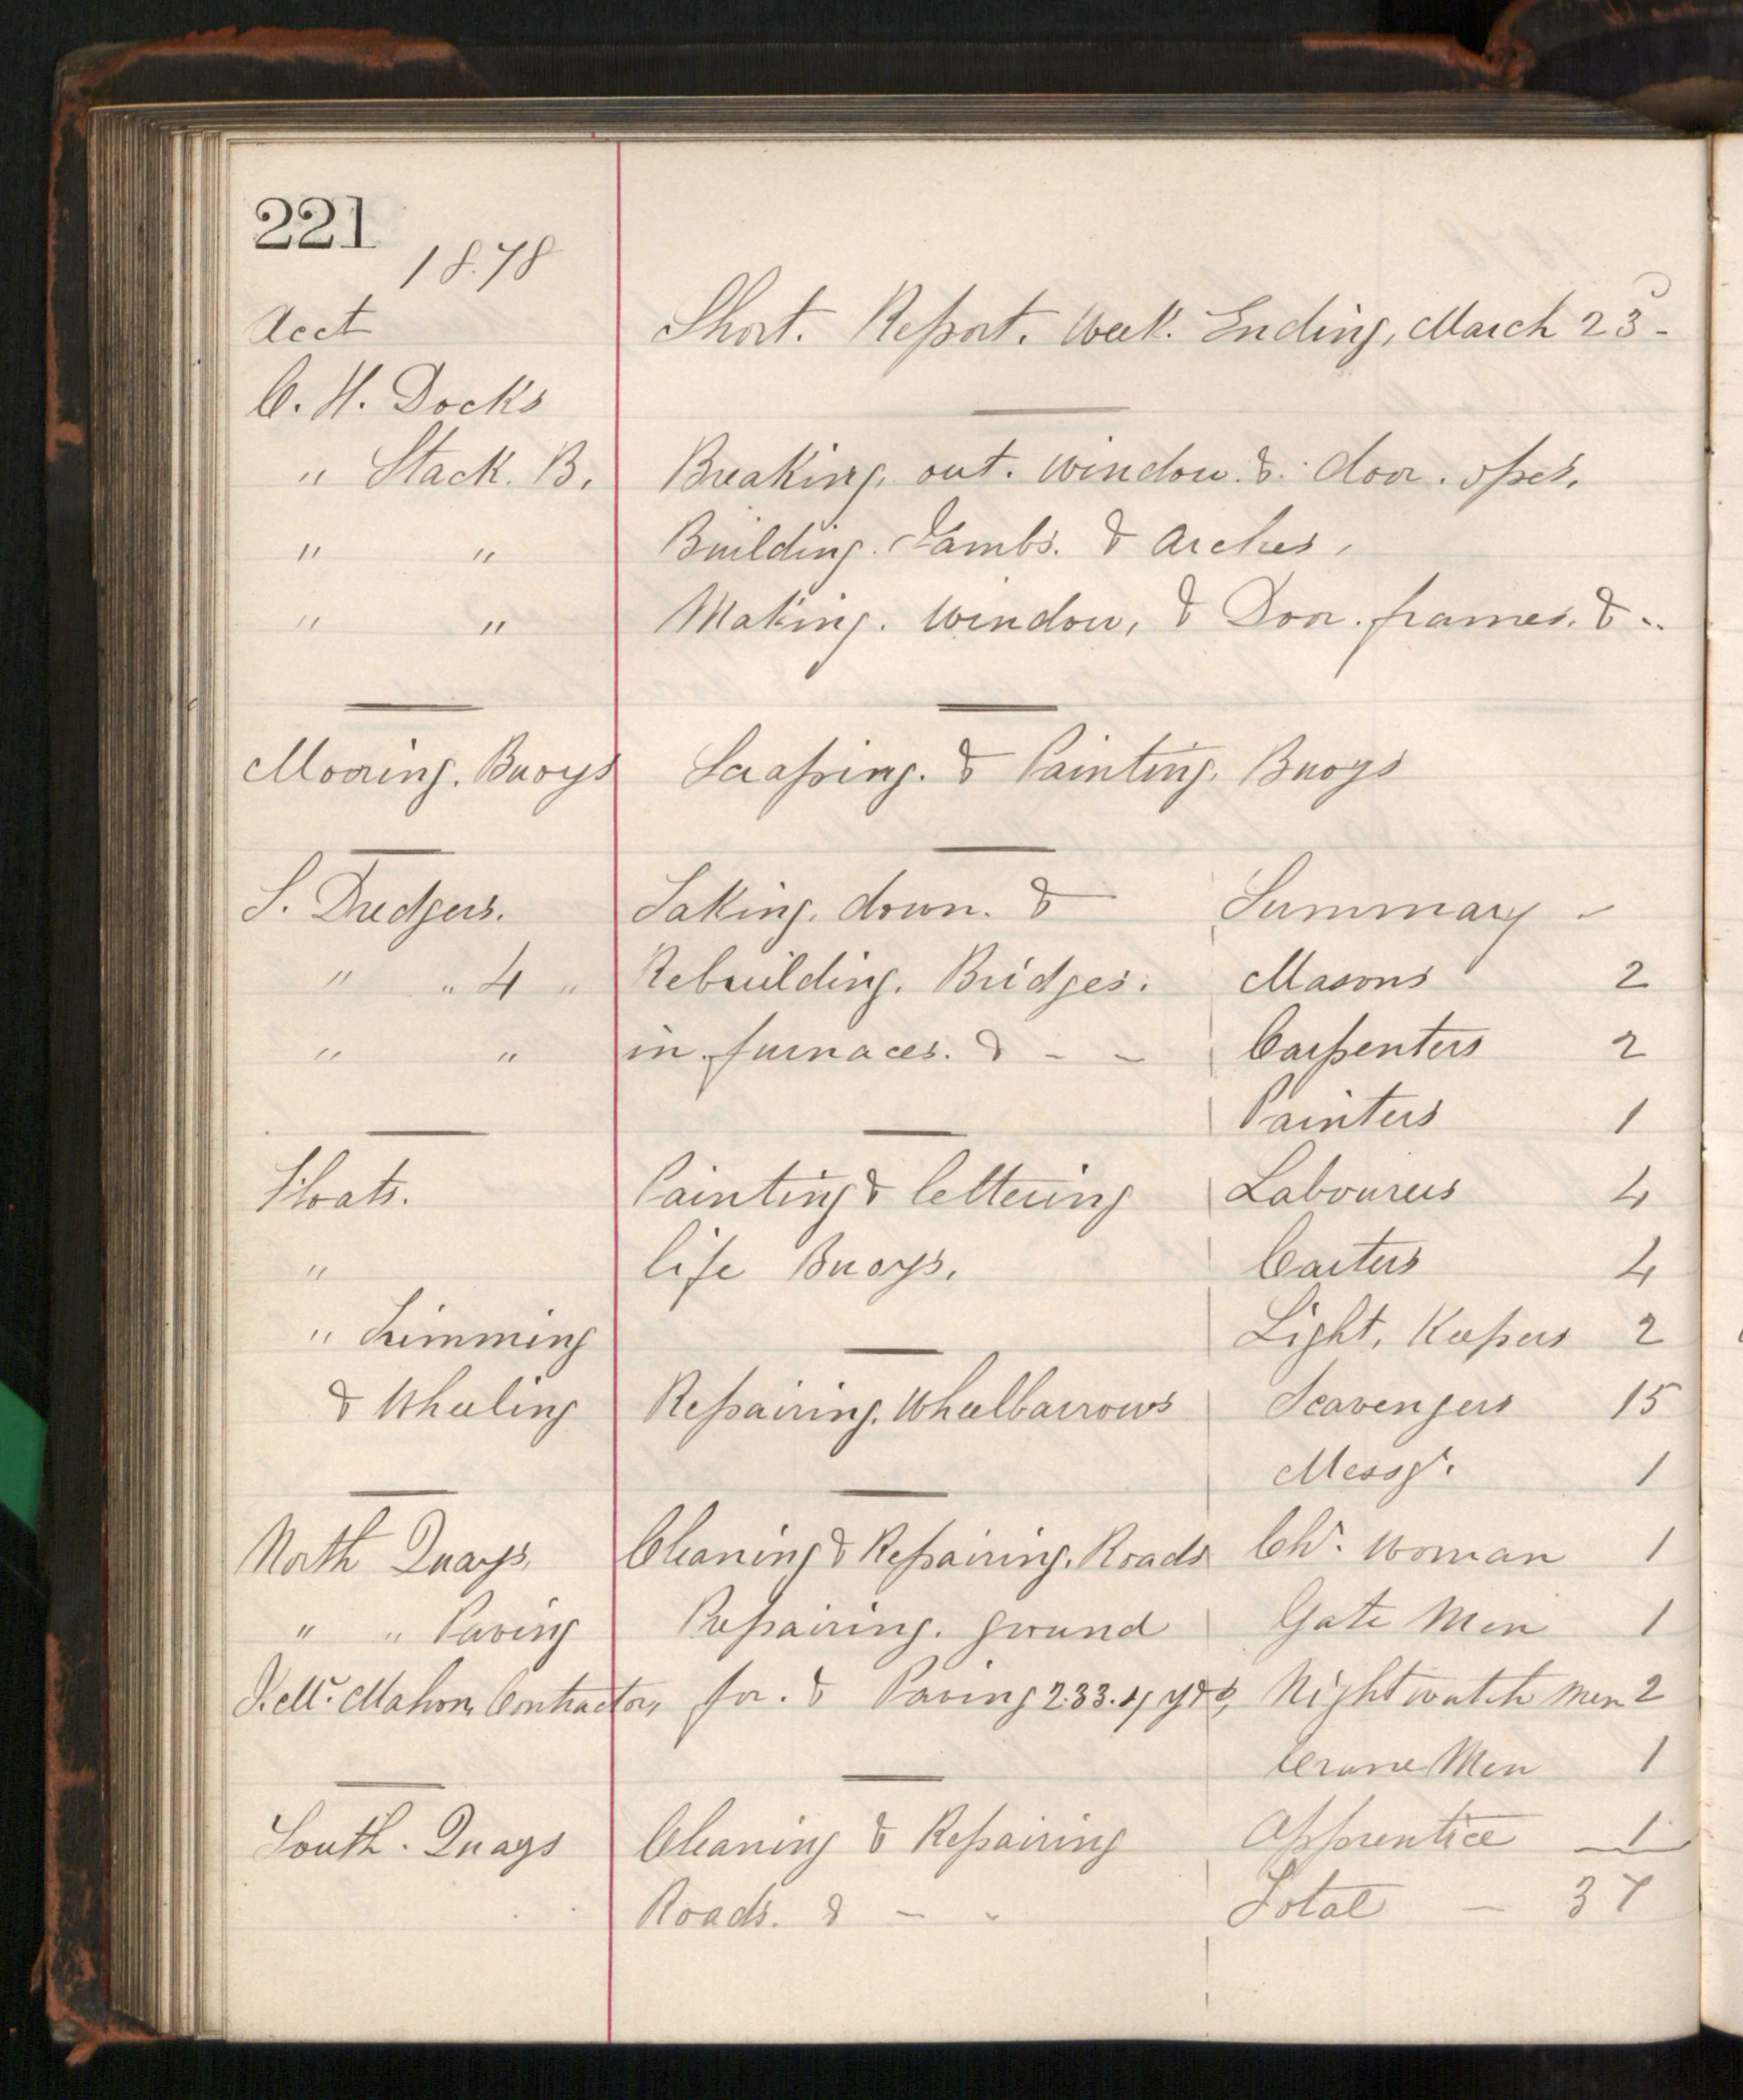 221
1878
Acct
Short. Report. Week. Ending, March 23rd
C. H. Docks
" Stack. B. Breaking, out. window. & door. opes.
" " Building. Jambs. & Arches,
" " Making. window, & Door. frames. & ..
Mooring. Buoys Scraping. & Painting. Buoys
S. Dredgers. Taking. down. & Summary
" " 4 " Rebuilding. Bridges. Masons 2
" " in furnaces. & - - Carpenters 2
Painters 1
Floats. Painting & lettering Labourers 4
" life Buoys. Carters 4
" Trimming Light. Keepers 2
& Wheeling Repairing. Wheelbarrows Scavengers 15
Messgr. 1
North Quays, Cleaning & Repairing. Roads Chr. Woman 1
" " Paving Preparing. ground Gate Men 1
J. Mc. Mahon, Contractor, for. & Paving 233.4 yds, Night watch men 2
Crane Men 1
South. Quays Cleaning & Repairing Apprentice 1
Roads. & - - Total - 37